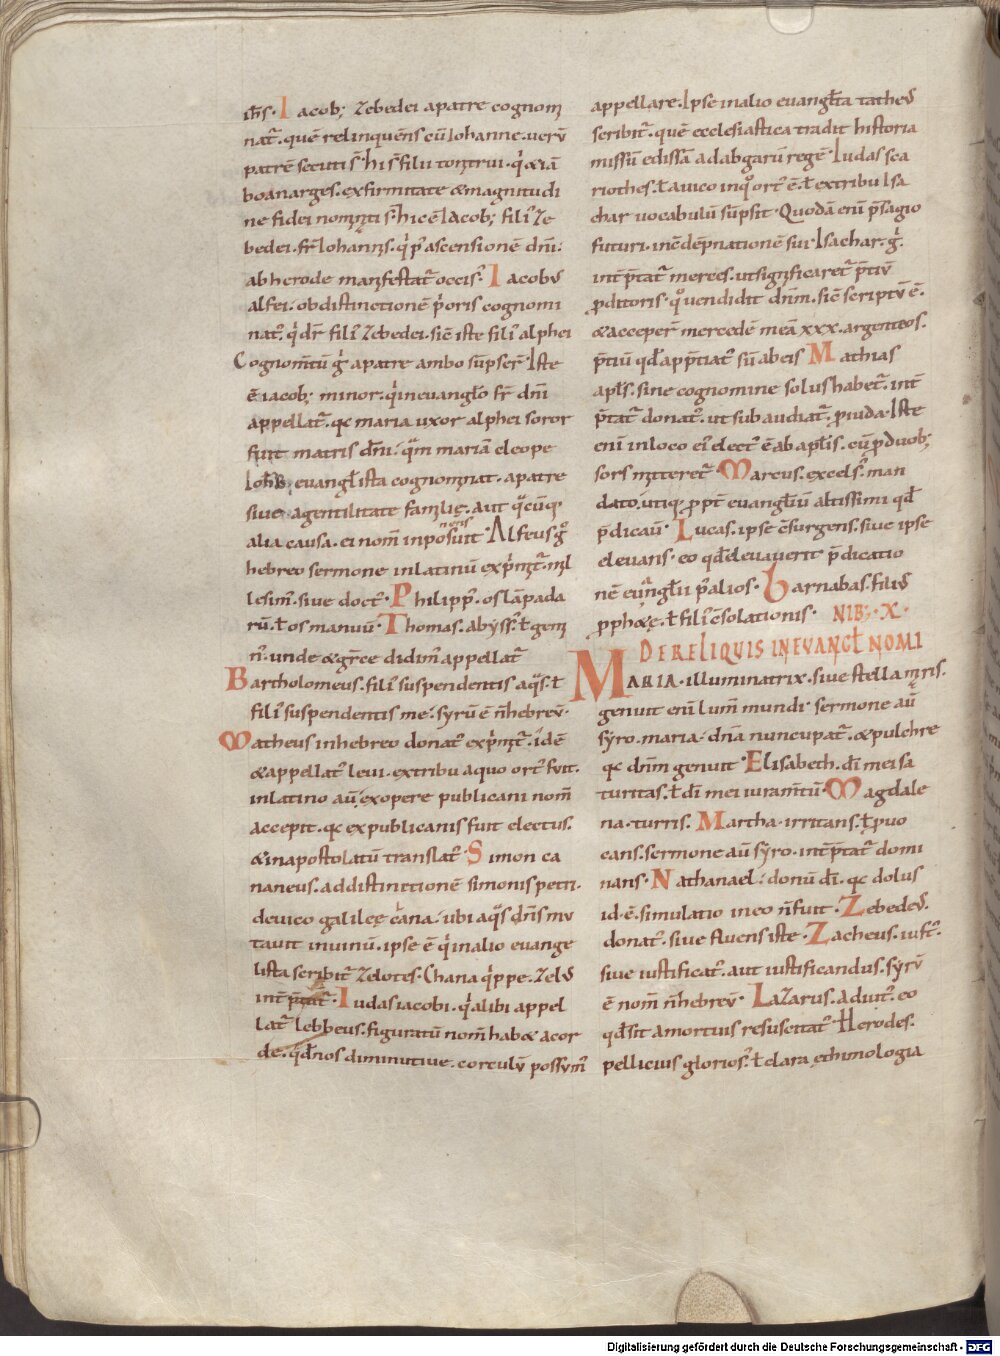 ih̅s · Iacob; Zebedei apatre cognom
nat᷒. quē relinquens cū Iohanne. uerū
patrē secuti s̄. hi s̄ filii tonitrui. q̇ &iā
boanarges. exfirmitate &magnitudi
ne fidei nominati s̄. hic ē Iacob; fili᷒ Ze
bedei. fr̄ Iohannis. q̇ p᷒ ascensionē dn̄i.
ab herode manifestat᷒ occis᷒. Iacobus
alfei. ob distinctionē ṗoris cognomi
nat᷒. q̇ dr̄ fili᷒ Zebedei. sic iste fili᷒ alphei
Cognom̄tū g̊ apatre ambo sūpser̄. Iste
ē iacob; minor. q̇ in euangl̄io fr̄ dn̄i
appellat᷒. qc maria uxor alphei soror
fuit matris dn̄i. quā mariā cleope
Ioh̄s euangl̄ista cognominat. apatre
siue agentilitate familię. aut q̇cūq;
alia causa. ei nom̄ inponens. Alfeus g̊
hebreo sermone in latinū exṗmit᷒. mil
lesim᷒. siue doct᷒. Philipp᷒. os lāpada
rū. ł os manuū. Thomas. abyss᷒. ł gemi
n᷒. unde & gr̄ce didim᷒ appellat᷒
Bartholomeus. fili᷒ suspendentis aq̇s. ł
fili᷒ suspendentis me. syrū ē n̄ hebreū.
Matheus in hebreo donat᷒ exṗmit᷒. idē
& appellat᷒ leui. extribu aquo ort᷒ fuit.
in latino aū. ex opere publicani nom̄
accepit. qc ex publicanis fuit electus.
& in apostolatū translat᷒. Simon ca
naneus. ad distinctionē simonis petri.
deuico galileę cana. ubi aq̇s dn̄s mu
tauit in uinū. ipse ē q̇ in alio euange
lista scribit᷒ Zelotes. Chana q̇ppe. Zelus
int̄p̄tat᷒. Iudas iacobi. q̇ alibi appel
lat᷒ lebbeus. figuratū nom̄ hab& acor
de. qd̄ nos diminutiue. corculū possum᷒
appellare. Ipse in alio euangl̄ista tatheus
scribit᷒. quē ecclesiastica tradit historia
missū edissā ad abgarū regē. Iudas sca
riothes. ł auico inquo ort᷒ ē. ł extribu Isa
char uocabulū sūpsit. Quodā enī p̄sagio
futuri. inc̄dēpnationē sui. Isachar. g̊.
int̄p̄tat᷒ merces. ut significaret᷒ p̄tiū
ꝓditoris. quo uendidit dn̄m. sic̄ scriptū ē.
& acceper̄ mercedē meā xxx. argenteos.
p̄tiū qd̄ app̄tiat᷒ sū ab eis. Mathias
apl̄s. sine cognomine solus habet᷒. int̄
p̄tat᷒ donat᷒. ut subaudiat᷒. ꝓ iuda. Iste
enī in loco ei᷒ elect᷒ ē ab apl̄is. cū ꝓ duob;
sors mitteret᷒. Marcus. excels᷒. man
dato utiq; ꝓpt̄ euangl̄iū altissimi qd̄
p̄dicauī. Lucas. ipse c̄surgens. siue ipse
eleuans. eo qd̄ eleuauerit p̄dicatio
nē euāngl̄ii p᷒ alios. Barnabas. filius
ꝓph&ę. ł fili᷒ c̄solationis. NIB;. X.
DE RELIQUIS IN EVANGŁ NOMI
MARIA. illuminatrix. siue stella maris.
genuit enī lum̄ mundi. sermone aū
syro. maria. dn̄a nuncupat᷒. & pulchre
qc dn̄m genuit. Elisabeth. dī mei sa
turitas. ł dī mei iuram̄tū. Magdale
na. turris. Martha. irritans. ł ꝓuo
cans. sermone aū syro. int̄p̄tat᷒ domi
nans. Nathanael. donū dī. qc dolus
id. ē. simulatio in eo n̄ fuit. Zebedeus.
donat᷒. siue fluens iste. Zacheus. iust᷒.
siue iustificat᷒. aut iustificandus. syrū
ē nom̄ n̄ hebreū. Lazarus. adiut᷒. eo
qd̄ sit amortuis resuscitat᷒. Herodes.
pellicius glorios᷒. ł clara ethimologia
Digitalisierung gefördert durch die Deutsche Forschungsgemeinschaft - DFG